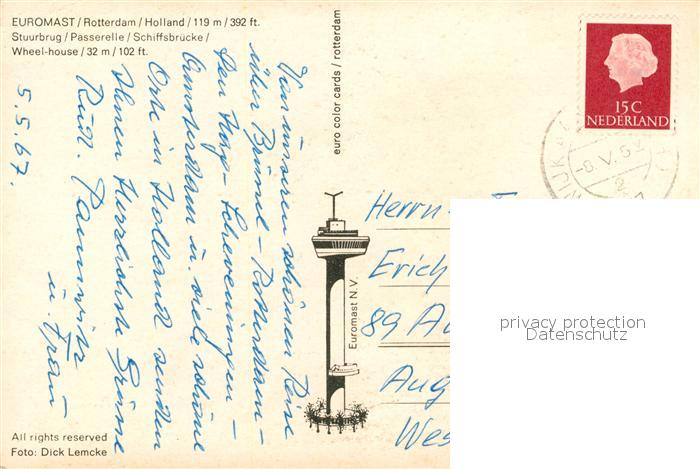 EUROMAST / Rotterdam / Holland / 119 m / 392 ft.
Stuurbrug / Passerelle / Schiffsbrücke /
Wheel-house / 32 m / 102 ft.
5.5.67.
Von unserer schönen Reise
über Brüssel – Rotterdam –
Den Haag – Scheveningen –
Amsterdam u. viele schöne
Orte in Holland senden
Ihnen Herzlichste Grüsse
Rud.
u. Frau
All rights reserved
Foto: Dick Lemcke
euro color cards / rotterdam
Euromast N.V.
15 C
NEDERLAND
Herrn
Erich
89 Au
Aug
Wes
privacy protection
Datenschutz